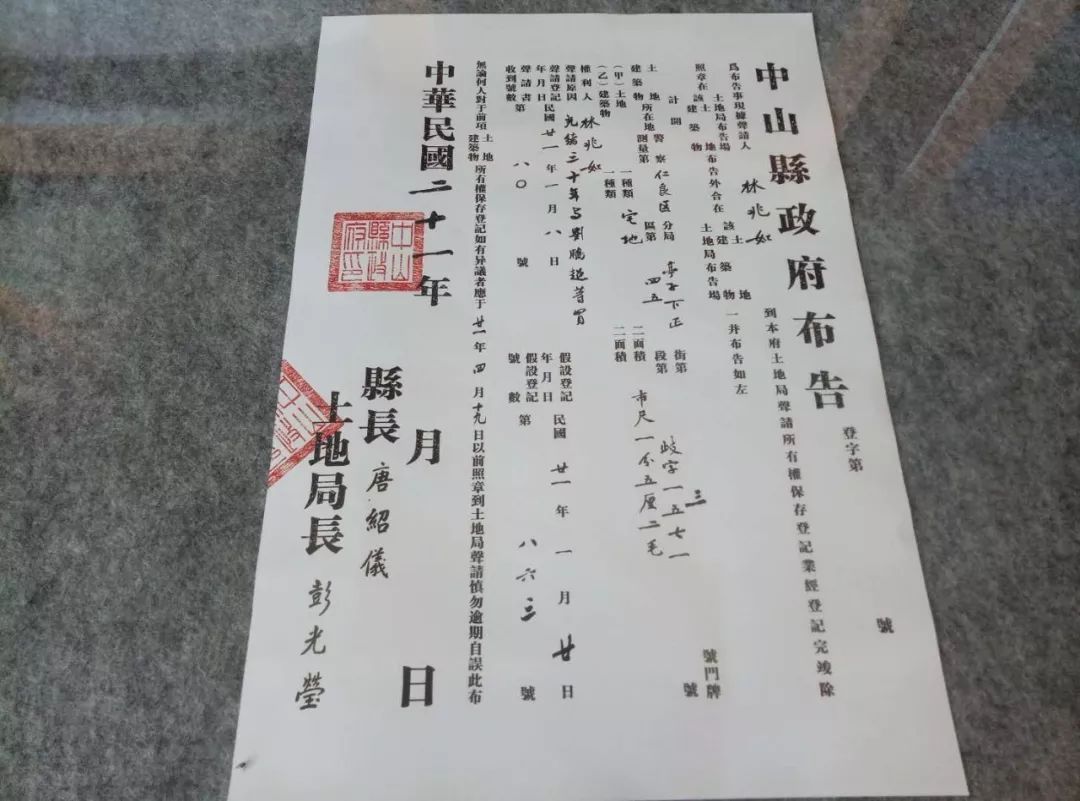 中山縣政府布告
登字第 號
為布告事現據聲請人 林兆如 到本府土地局聲請所有權保存登記業經登記完竣除
土地局布告場 該土地
照章在該土地建築物布告外合在該建築物土地局布告場一并布告如左
計開
土地建築物所在地 警察 仁良區 分局 亭子下正 街第 三 號門牌
測量第 區第 四五 段第 歧字一五七一 號
(甲)土地 一種類 宅地 二面積 市尺一分五厘二毛
(乙)建築物 一種類 二面積
權利人 林兆如
聲請原因 光緒三十年與劉鵬超等買
聲請登記年月日 民國廿一年一月八日 假設登記年月日 民國廿一年一月廿日
聲請書收到號數 第八〇號 假設登記號數 第八六三號
無論何人對于前項土地建築物所有權保存登記如有异議者應于廿一年四月十九日以前照章到土地局聲請慎勿逾期自誤此布
中華民國二十一年 月 日
縣長 唐紹儀
土地局長 彭光瑩
中山縣政府印